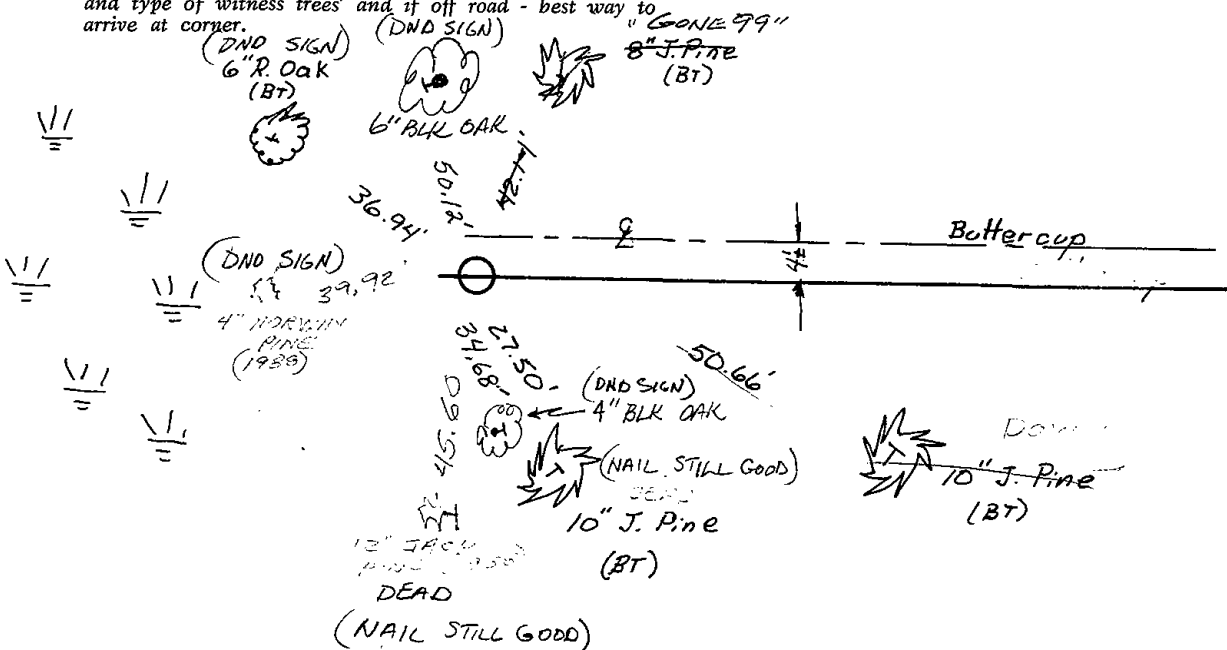 and type of witness trees and if off road - best way to
arrive at corner.
(DND SIGN)
6" R. Oak
(BT)
(DND SIGN)
6" BLK OAK
"GONE 99"
8" J. Pine
(BT)
36.94'
50.12'
42.17'
℄
4'±
Buttercup
(DND SIGN)
39.92'
4" NORWAY
PINE
34.68'
27.50'
45.60
50.66'
(DND SIGN)
4" BLK OAK
(NAIL STILL GOOD)
DEAD
10" J. Pine
(BT)
10" J. Pine
(BT)
12" JACK
DEAD
(NAIL STILL GOOD)